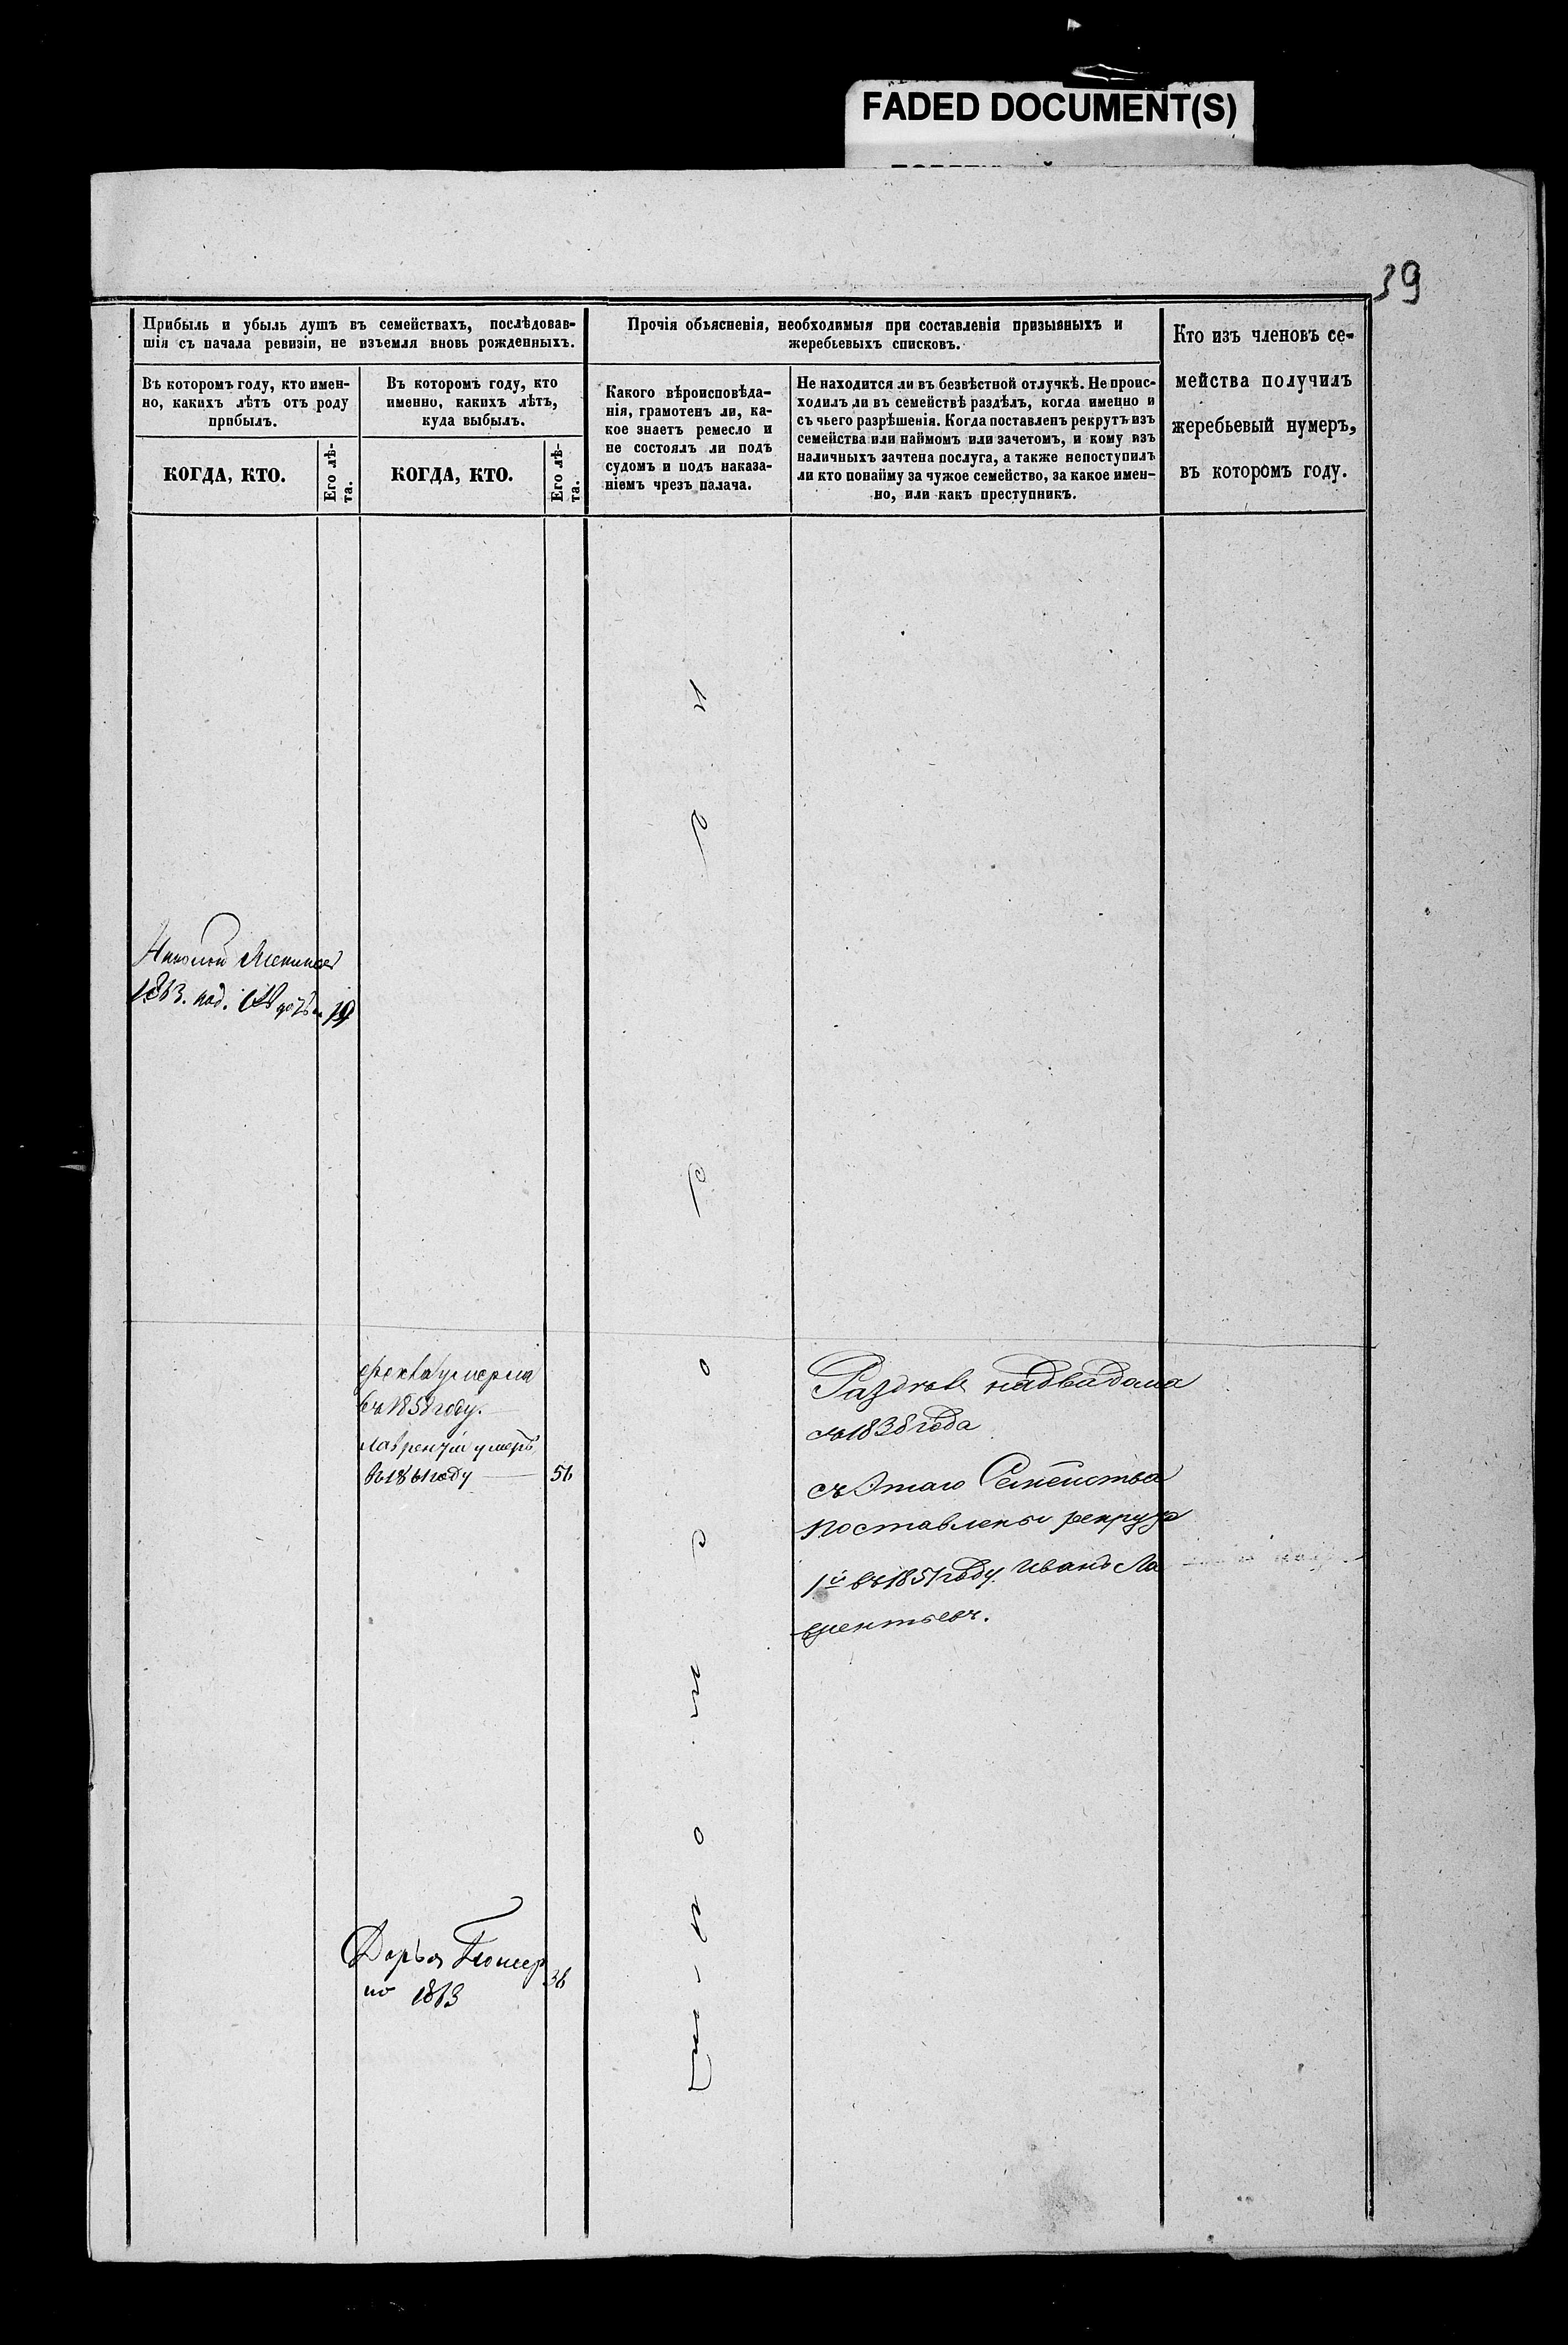 FADED DOCUMENT(S)
39
Прибыль и убыль душъ въ семействахъ, послѣдовав-
шія съ начала ревизіи, не изъемля вновь рожденныхъ.
Въ которомъ году, кто имен-
но, какихъ лѣтъ отъ роду
прибылъ.
КОГДА, КТО.
Его лѣ-
та.
Въ которомъ году, кто
именно, какихъ лѣтъ,
куда выбылъ.
КОГДА, КТО.
Его лѣ-
та.
Прочія объясненія, необходимыя при составленіи призывныхъ и
жеребьевыхъ списковъ.
Какого вѣроисповѣда-
нія, грамотенъ ли, ка-
кое знаетъ ремесло и
не состоялъ ли подъ
судомъ и подъ наказа-
ніемъ чрезъ палача.
Не находится ли въ безвѣстной отлучкѣ. Не проис-
ходилъ ли въ семействѣ раздѣлъ, когда именно и
съ чьего разрѣшенія. Когда поставленъ рекрутъ изъ
семейства или наймомъ или зачетомъ, и кому изъ
наличныхъ зачтена послуга, а также непоступилъ
ли кто понайму за чужое семейство, за какое имен-
но, или какъ преступникъ.
Кто изъ членовъ се-
мейства получилъ
жеребьевый нумеръ,
въ которомъ году.
1863. 19
умерла
въ 185 году.
Лаврентій умеръ
въ 1861 году 56
Раздѣлъ на два дома
съ 1838 года
съ Этаго Семейства
поставлены рекрута
1й въ 1851 году Иванъ Ла
врентьевъ.
Дарья 36
1863